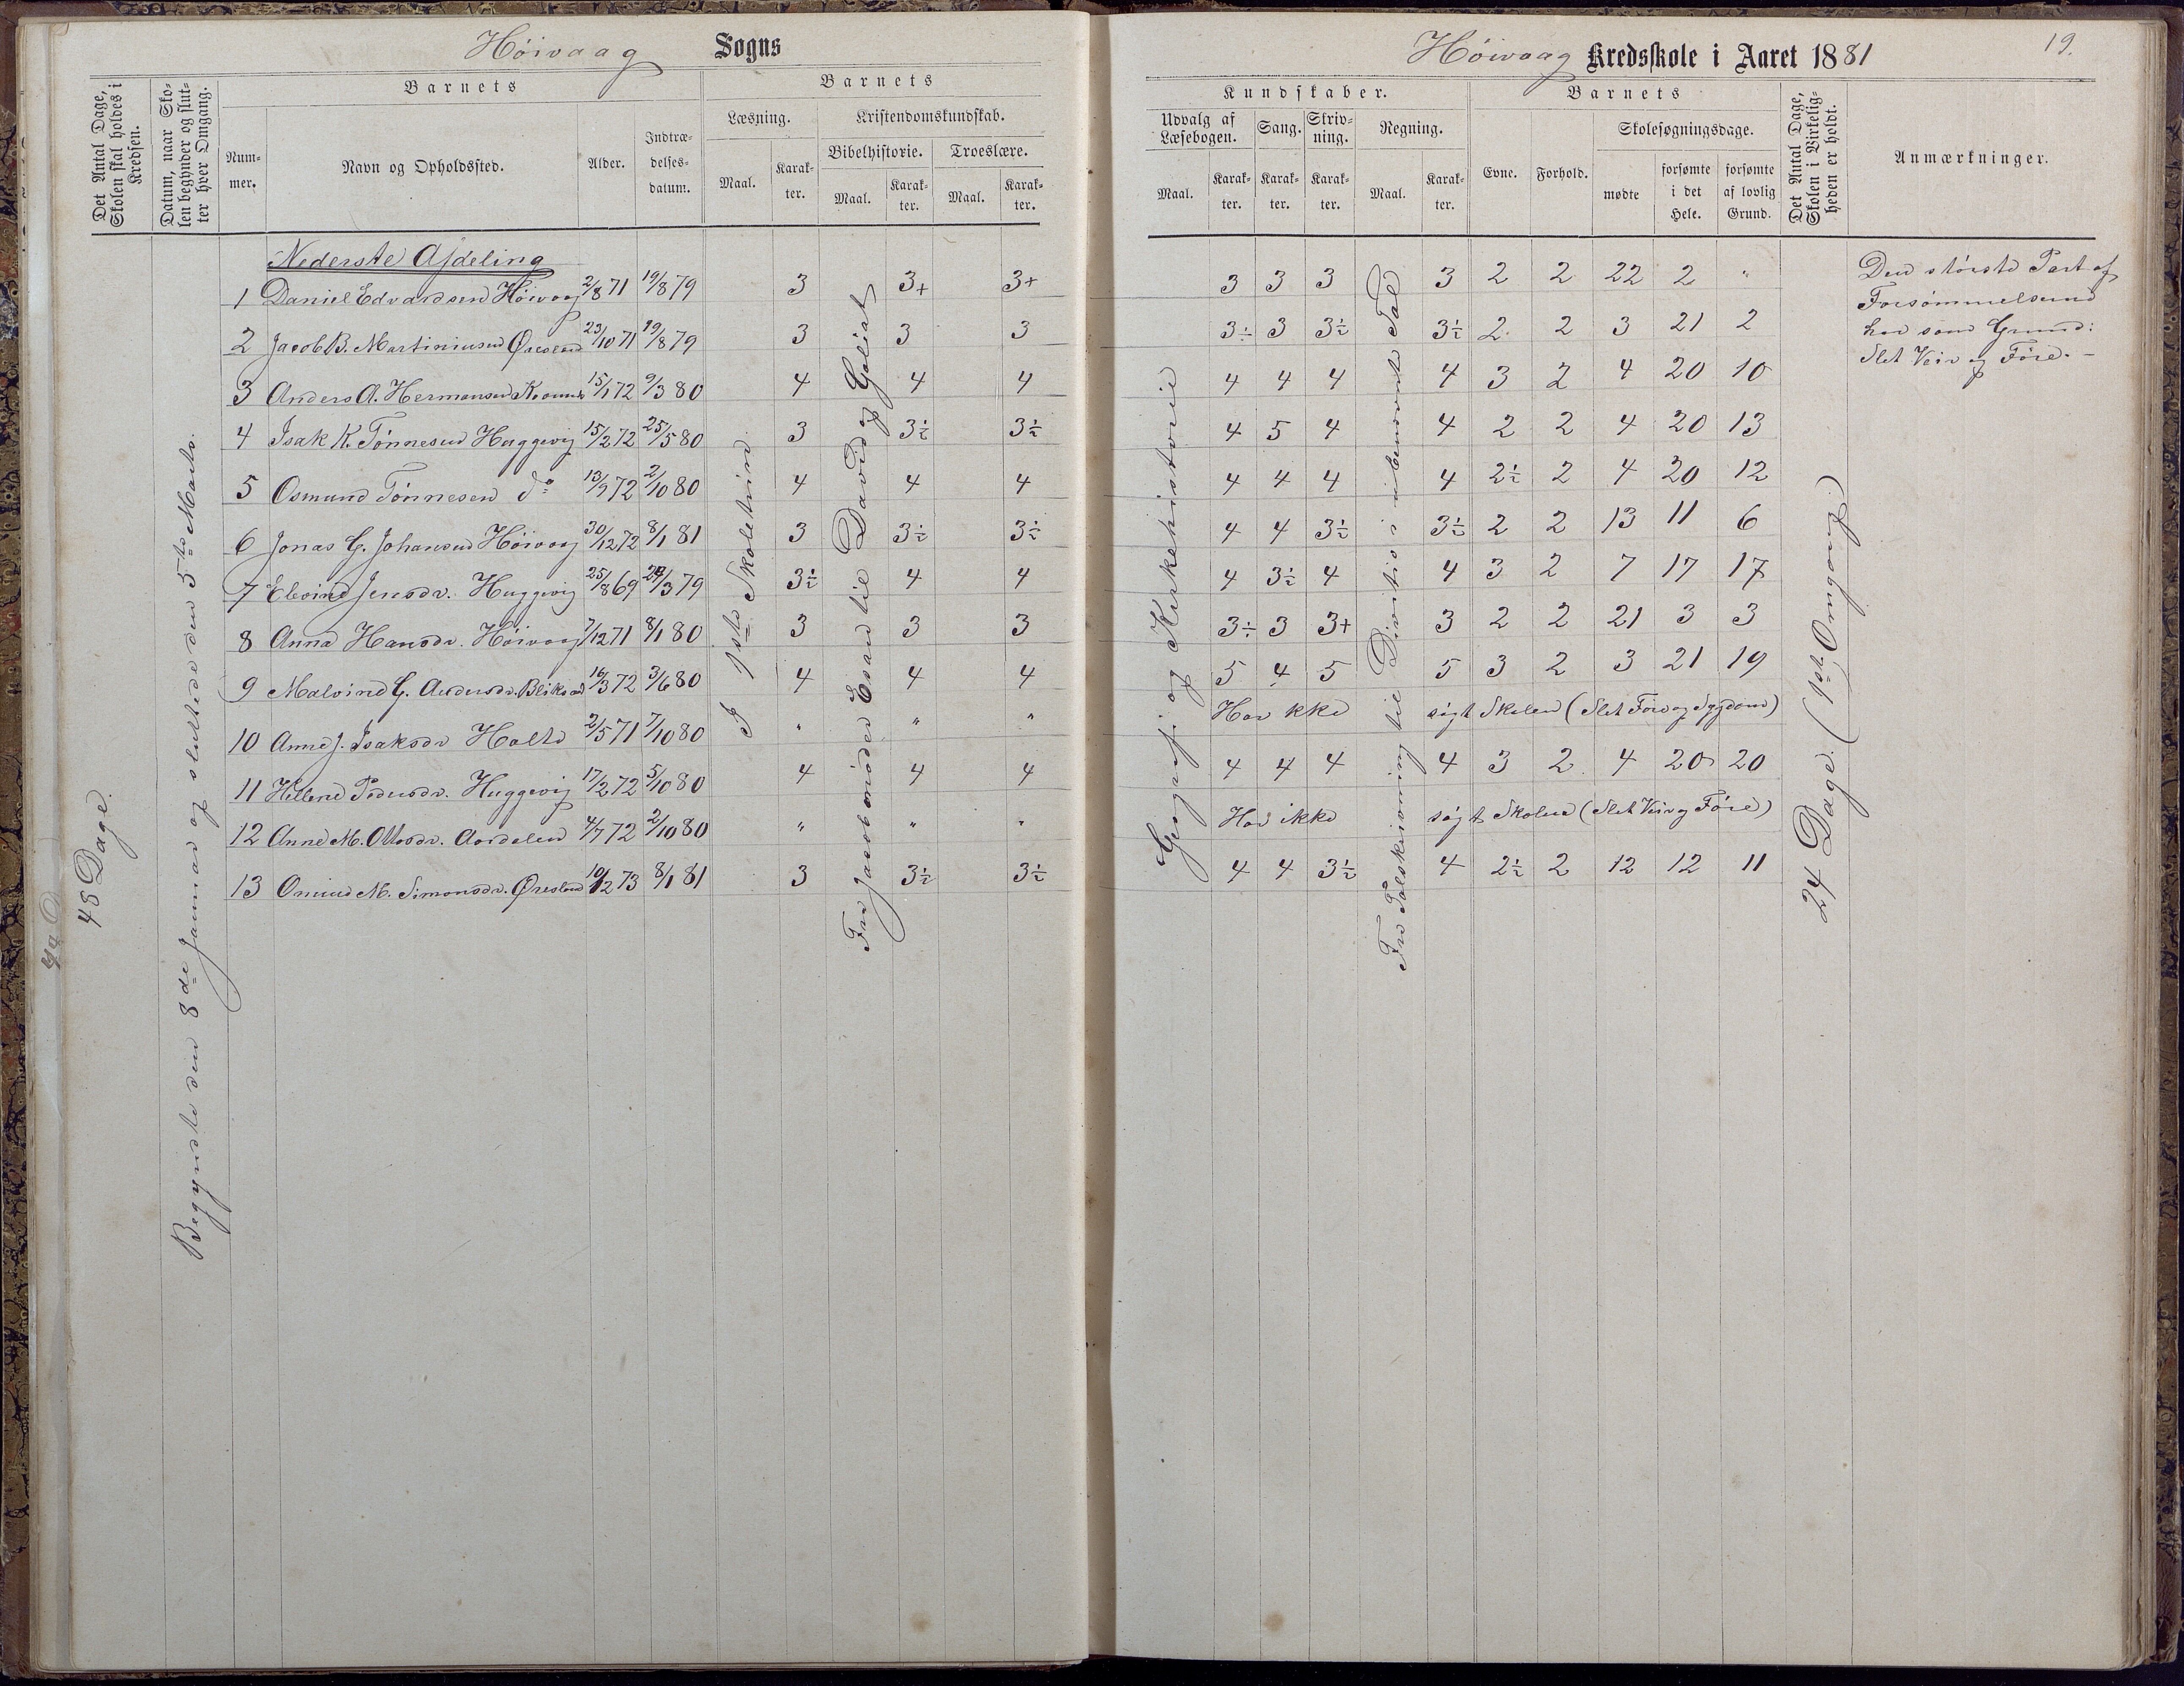 Höivaag Sogns
Det Antal Dage, Skolen skal holdes i Kredsen.
Datum, naar Skolen begynder og slutter hver Omgang.
Barnets
Nummer.
Navn og Opholdssted.
Alder.
Indtrædelsesdatum.
Barnets
Læsning.
Maal.
Karakter.
Kristendomskundskab.
Bibelhistorie.
Maal.
Karakter.
Troeslære.
Maal.
Karakter.
48 Dage.
Begyndte den 8de Januar og sluttede den 5te Marts.
I 1ste Skoletrin
Fra Jacob møder Esau til David og Goliat
Nederste Afdeling
1 Daniel Edvardsen Höivaag 2/8 71 19/8 79 3 3+ 3+
2 Jacob B. Martiniusen Øresland 23/10 71 19/8 79 3 3 3
3 Anders A. Hermansen 15/1 72 9/3 80 4 4 4
4 Isak K. Tönnesen Huggevig 15/2 72 25/5 80 3 3½ 3½
5 Osmund Tönnesen do 13/9 72 2/10 80 4 4 4
6 Jonas G. Johansen Höivaag 30/12 72 8/1 81 3 3½ 3½
7 Elevine Jensdr. Huggevig 25/8 69 24/3 79 3½ 4 4
8 Anna Hansdr. Höivaag 7/12 71 8/1 80 3 3 3
9 Malvine G. Andersdr. Bliksad 16/3 72 3/6 80 4 4 4
10 Anne J. Isaksdr Holte 2/5 71 7/10 80 " " "
11 Hellene Pedersdr. Huggevig 17/2 72 5/10 80 4 4 4
12 Anne M. Ottosdr. Aardalen 4/7 72 2/10 80 " " "
13 Omine M. Simonsdr. Øresland 10/2 73 8/1 81 3 3½ 3½
Höivaag Kredsskole i Aaret 1881
19.
Kundskaber.
Udvalg af Læsebogen.
Maal.
Karakter.
Sang.
Karakter.
Skrivning.
Karakter.
Regning.
Maal.
Karakter.
Barnets
Evne.
Forhold.
Skolesøgningsdage.
mødte
forsømte i det Hele.
forsømte af lovlig Grund.
Det Antal Dage, Skolen i Virkeligheden er holdt.
Anmærkninger.
Geografi og Kirkehistorie
Fra Talskrivning til Division i ubenævnte Tal
24 Dage. (1ste Omgang)
3 3 3 3 2 2 22 2 "
3½ 3 3½ 3½ 2 2 3 21 2
4 4 4 4 3 2 4 20 10
4 5 4 4 2 2 4 20 13
4 4 4 4 2½ 2 4 20 12
4 4 3½ 3½ 2 2 13 11 6
4 3½ 4 4 3 2 7 17 17
3½ 3 3+ 3 2 2 21 3 3
5 4 5 5 3 2 3 21 19
Har ikke søgt Skolen (Slet Före og Sygdom)
4 4 4 4 3 2 4 20 20
Har ikke søgt Skolen (Slet Veir og Före)
4 4 3½ 4 2½ 2 12 12 11
Den störste Part af
Forsömmelserne
har som Grund:
Slet Veir og Före. -